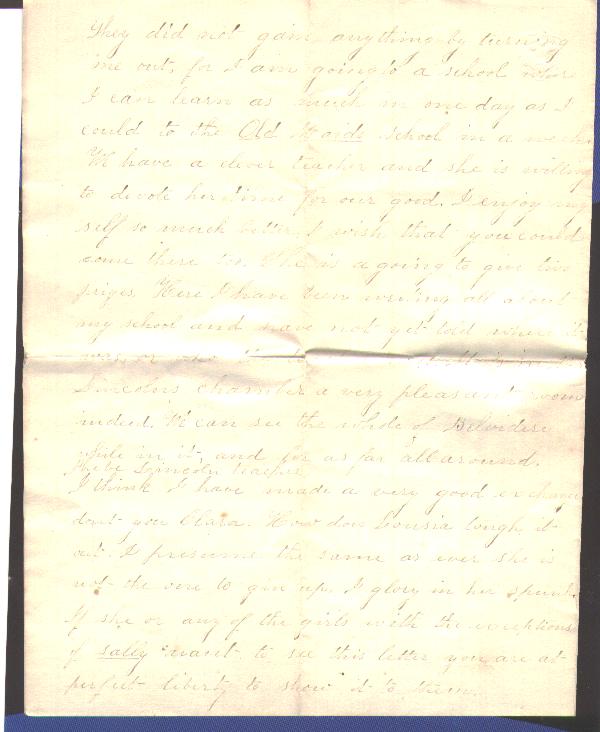 They did not gain anything by turning
me out, for I am going to a school where
I can learn as much in one day as I
could to the Old Maids school in a week.
We have a clever teacher and she is willing
to devote her time for our good. I enjoy my
self so much better, I wish that you could
come there too. She is a going to give two
prizes. Here I have been writing all about
my school and have not yet told where it
was, or who the
Lincolns chamber a very pleasent room
indeed. We can see the whole of Belvidere
while in it, and for as far all around.
Lincoln teacher
I think I have made a very good exchange
dont you Clara. How does Lousia tough it
out. I presume the same as ever she is
not the one to give up. I glory in her spunk.
If she or any of the girls with the exceptions
of sally want to see this letter you are at
perfect liberty to show it to them.